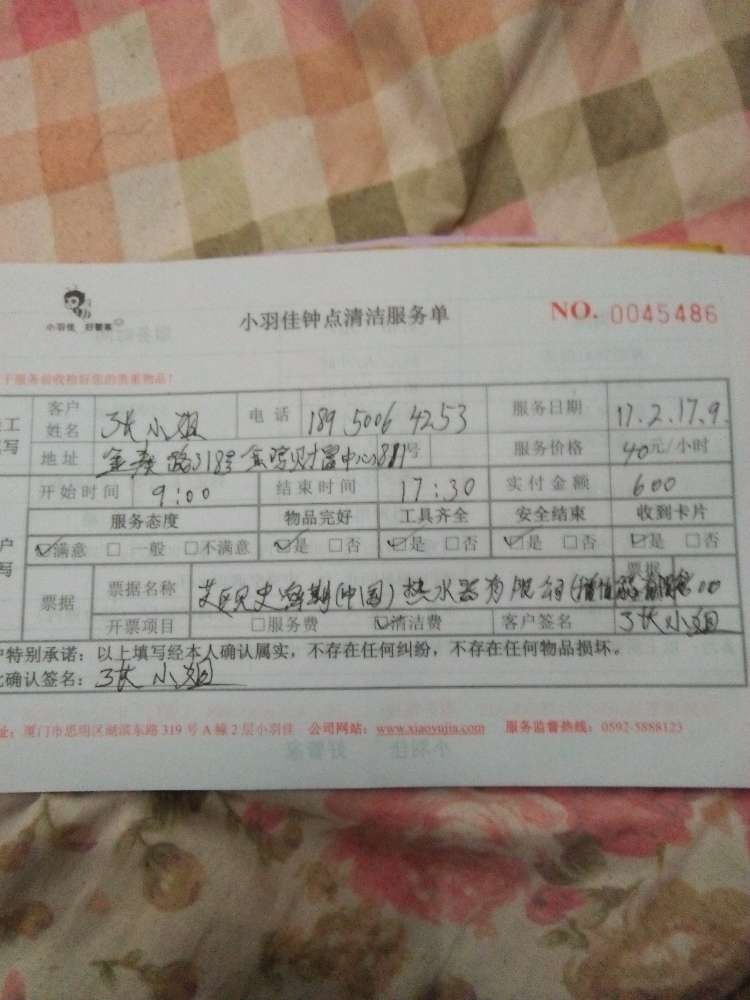 小羽佳 好管家
小羽佳钟点清洁服务单
NO. 0045486
服务前收拾好您的贵重物品!
客户姓名 张小姐 电话 189 5006 4253 服务日期 17.2.17.9.
地址 路318号 中心811号 服务价格 40元/小时
开始时间 9:00 结束时间 17:30 实付金额 600
服务态度 物品完好 工具齐全 安全结束 收到卡片
☑满意 □一般 □不满意 ☑是 □否 ☑是 □否 ☑是 □否 ☑是 □否
票据 票据名称 (中国)热水器有限公司 票据
开票项目 □服务费 ☑清洁费 客户签名 张小姐
户特别承诺：以上填写经本人确认属实，不存在任何纠纷，不存在任何物品损坏。
此确认签名：张小姐
址：厦门市思明区湖滨东路 319 号 A 幢 2 层小羽佳 公司网站：www.xiaoyujia.com 服务监督热线：0592-5888123